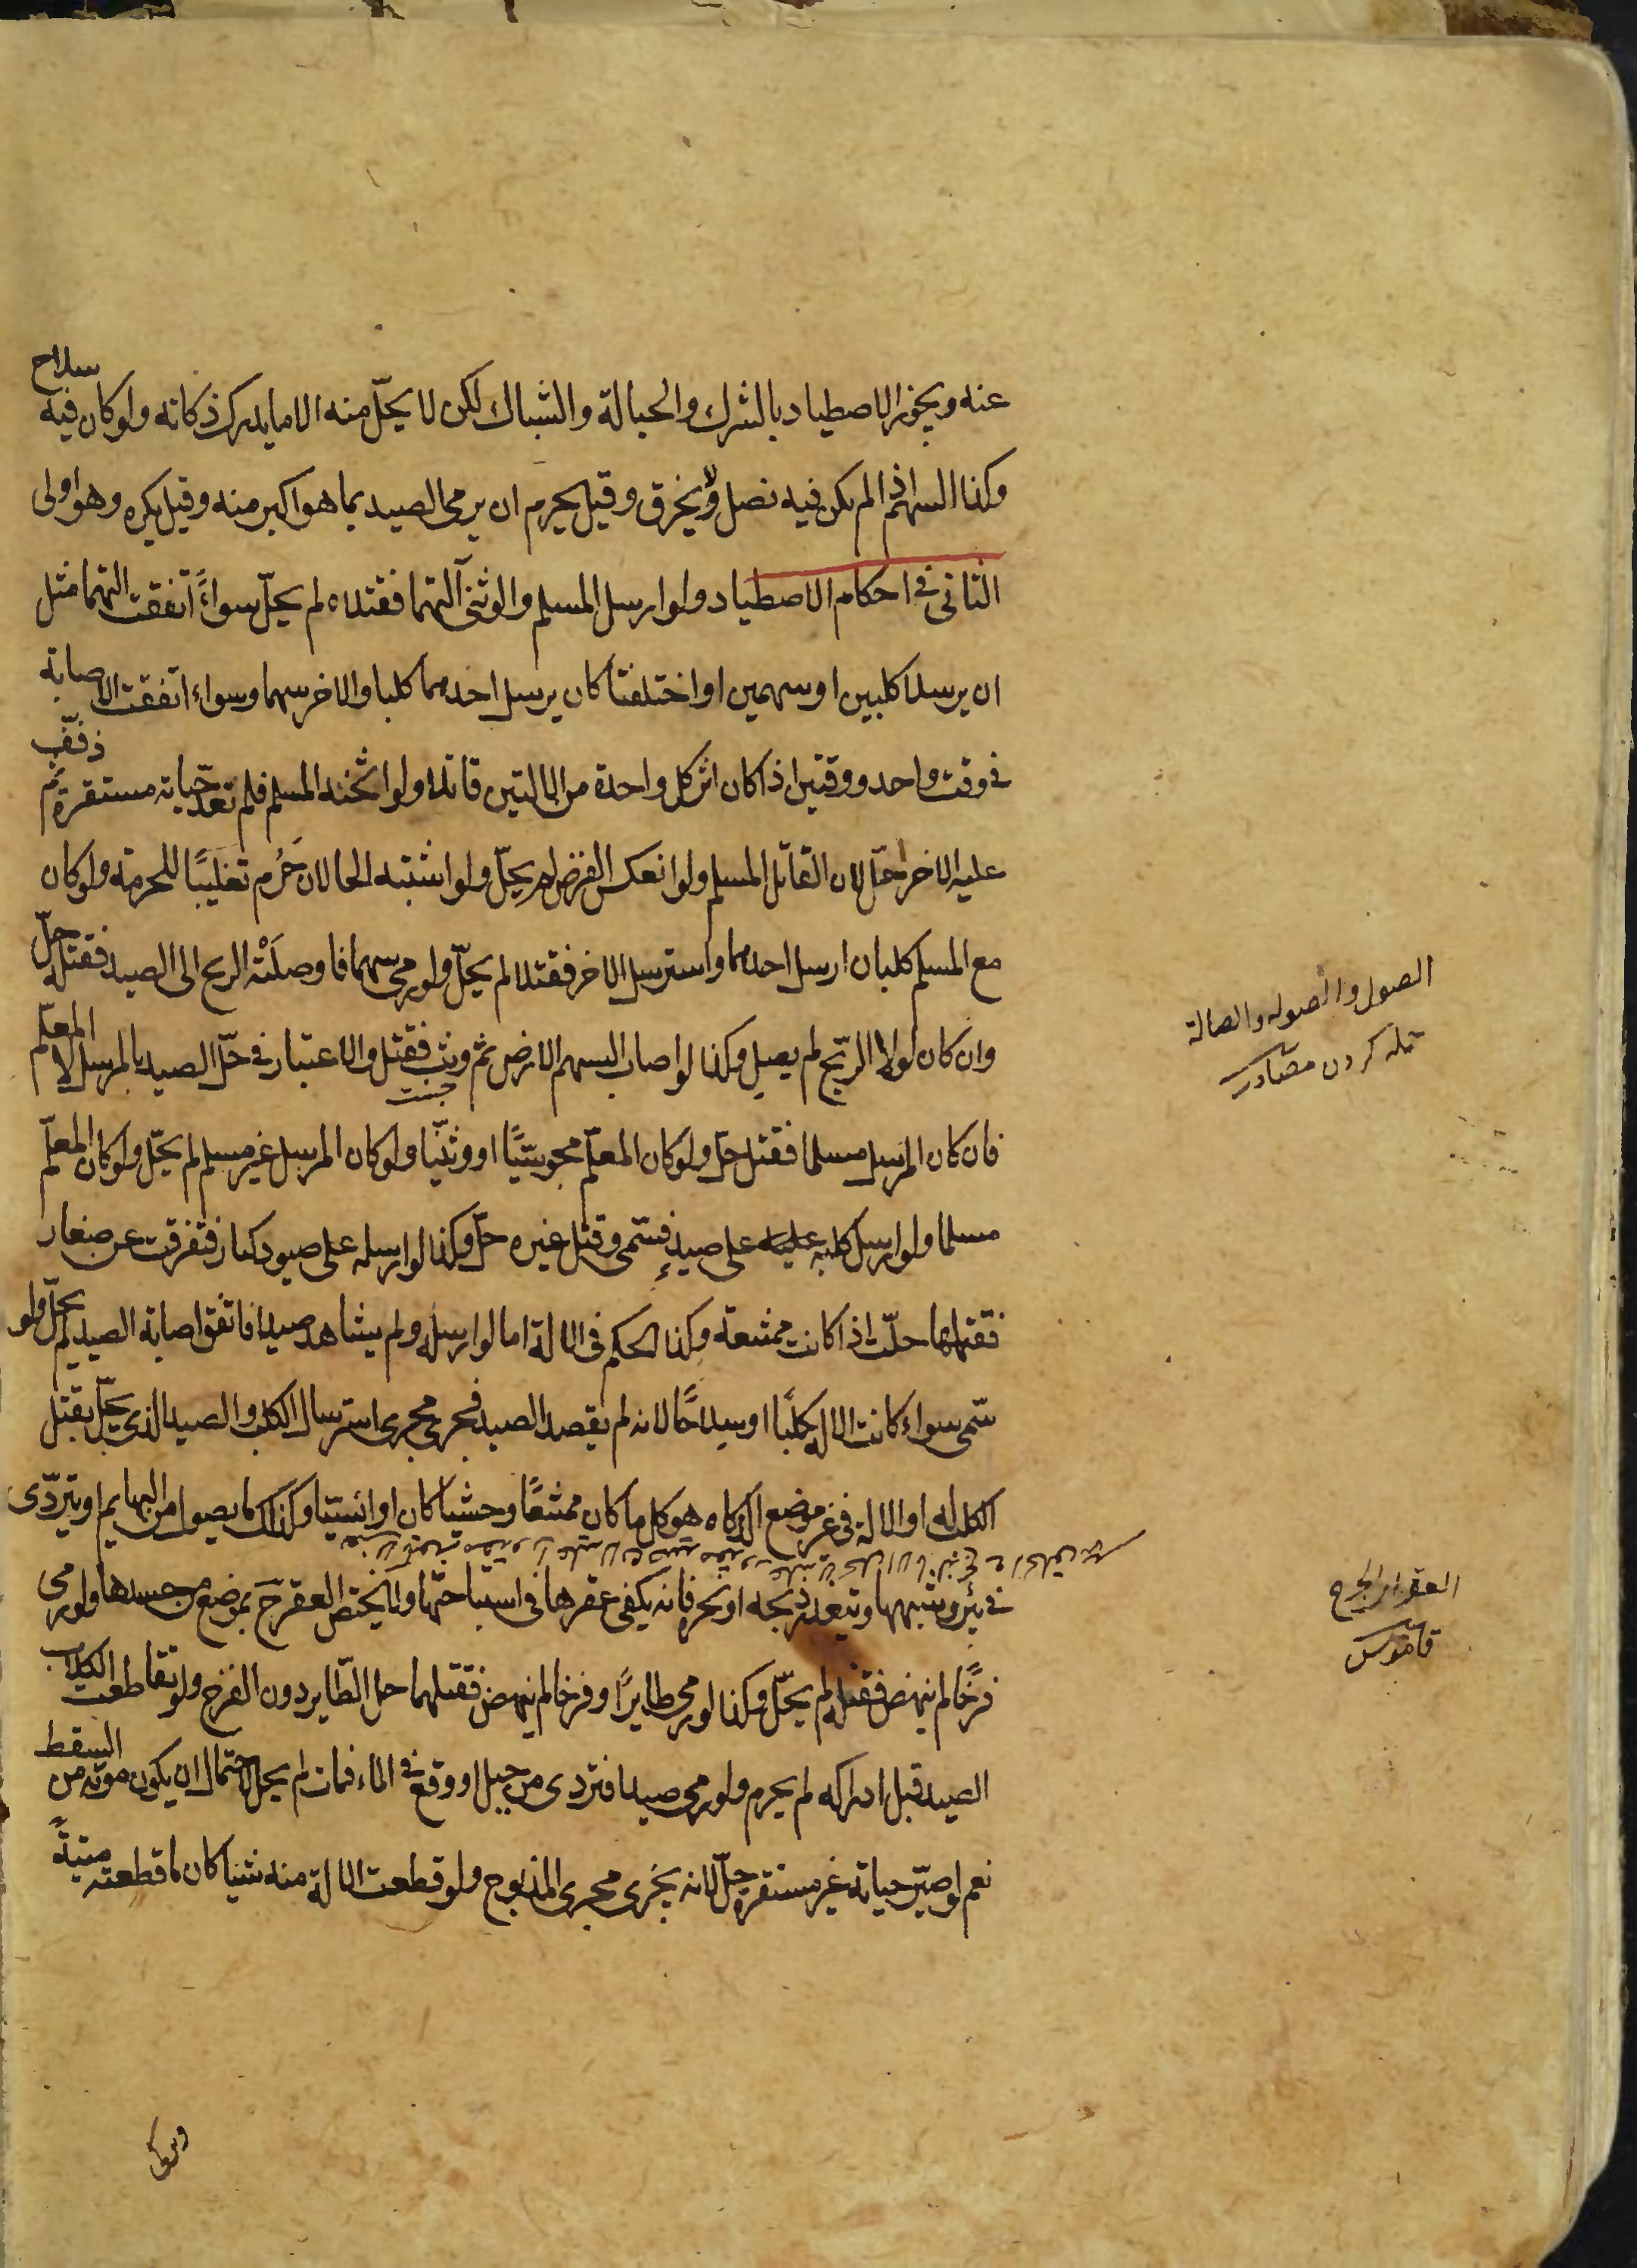 عنه ويجوز الاصطياد بالشرك والحبالة والشباك لكن لا يحلّ منه الا ما يدرك ذكاته ولو كان فيه سلاح
وكذا السهم اذا لم يكن فيه نصل ولا يخرق وقيل يحرم ان يرمى الصيد بما هو اكبر منه وقيل يكره وهو اولى
الثانى فى احكام الاصطياد ولو ارسل المسلم والوثنى آلتهما فقتلاه لم يحلّ سواءً اتفقت آلتهما مثل
ان يرسلا كلبين او سهمين او اختلفتا كان يرسل احدهما كلبا والاخر سهما وسواء اتفقت الاصابة
فى وقت واحد و وقتين اذا كان اثر كل واحدة من الالتين قاتلا ولو اثخنه المسلم فلم تعد حياته مستقرة ثم ذفّف
عليه الاخر حلّ لان القاتل المسلم ولو انعكس الفرض لم يحلّ ولو اشتبه الحالان حَرُم تغليبًا للحرمة ولو كان
مع المسلم كلبان ارسل احدهما واسترسل الاخر فقتلا لم يحلّ ولو رمى سهما فاوصلَتْه الريح الى الصيد فقتله حلّ
وان كان لولا الريح لم يصل وكذا لو اصاب السهم الارض ثم وثب فقتل والاعتبار فى حلّ الصيد بالمرسل لا المعلّم
جست
فان كان المرسل مسلما فقتل حلّ ولو كان المعلّم مجوسيًّا او وثنيّا ولو كان المرسل غير مسلم لم يحلّ ولو كان المعلّم
مسلما ولو ارسل كلبه عليه على صيدٍ فسمّى وقتل غيره حلّ وكذا لو ارسله على صيود كبار فتفرقت عن صغار
فقتلها حلّت اذا كانت ممتنعة وكذا الحكم فى الالة اما لو ارسله ولم يشاهد صيدا فاتّفق اصابة الصيد لم يحلّ ولو
سمّى سواء كانت الالة كلبًا او سلاحًا لانه لم يقصد الصيد فجرى مجرى استرسال الكلب والصيد الذى يحلّ بقتل
الكلب له او الالة فى غير موضع الذكاة هو كل ما كان ممتنعًا وحشيا كان او انسيّا وكذلك ما يصول من البهايم او يتردّى
فى بئر وشبهها ويتعذر ذبحه او نحره فانه يكفى عقرها فى استباحتها ولا يختص العقر ح بموضع من جسدها ولو رمى
فرخًا لم ينهض فقتله لم يحلّ وكذا لو رمى طايرًا وفرخا لم ينهض فقتلهما حل الطّاير دون الفرخ ولو تقاطعت الكلاب
الصيد قبل ادراكه لم يحرم ولو رمى صيدا فتردى من جبل او وقع فى الماء فمات لم يحل لاحتمال ان يكون موته من السقط
نعم لو صيّر حياته غير مستقرة حلّ لانه يجرى مجرى المذبوح ولو قطعت الالة منه شيئا كان ما قطعته ميتةً
الصول والصولة والصالة
حمله كردن مصادر
العقر اى الجرح
قاموس